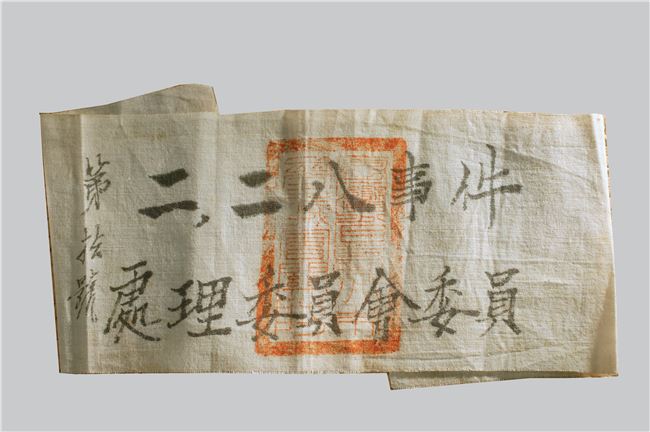 二、二八事件
處理委員會委員
第拾號